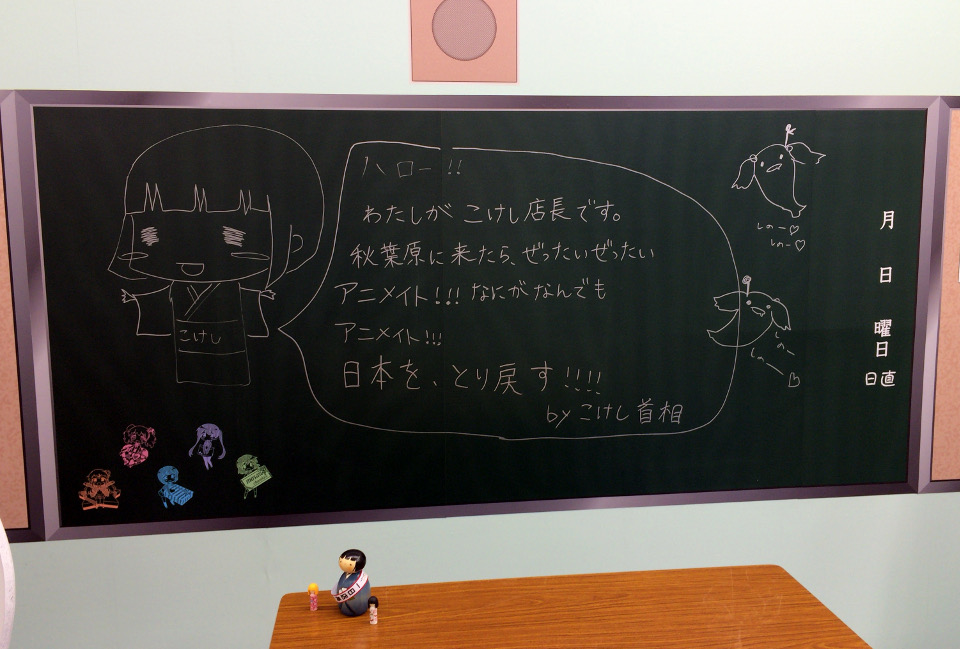 ハロー!!
わたしが こけし店長です。
秋葉原に来たら、ぜったいぜったい
アニメイト!!! なにがなんでも
アニメイト!!!
日本を、とり戻す!!!!
by こけし首相
こけし
しのー♡
しのー♡
しのー♡
月
日
曜日
日直